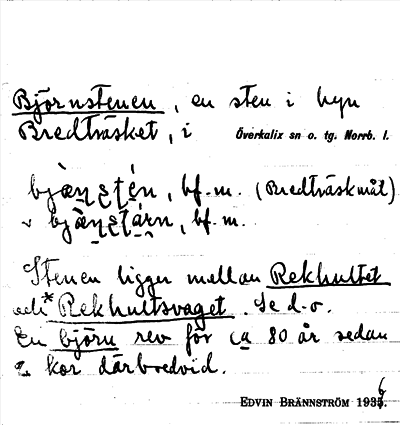 Björnstenen, en sten i byn
Bredträsket, i Överkalix sn o. tg. Norrb. l.
bf. m. (Bredträskmål)
bf. m.
Stenen ligger mellan Rekhultet
och *Rekhultsvaget. Se d-o.
En björn rev för ca 80 år sedan
2 kor därbredvid.
EDVIN BRÄNNSTRÖM 1936.